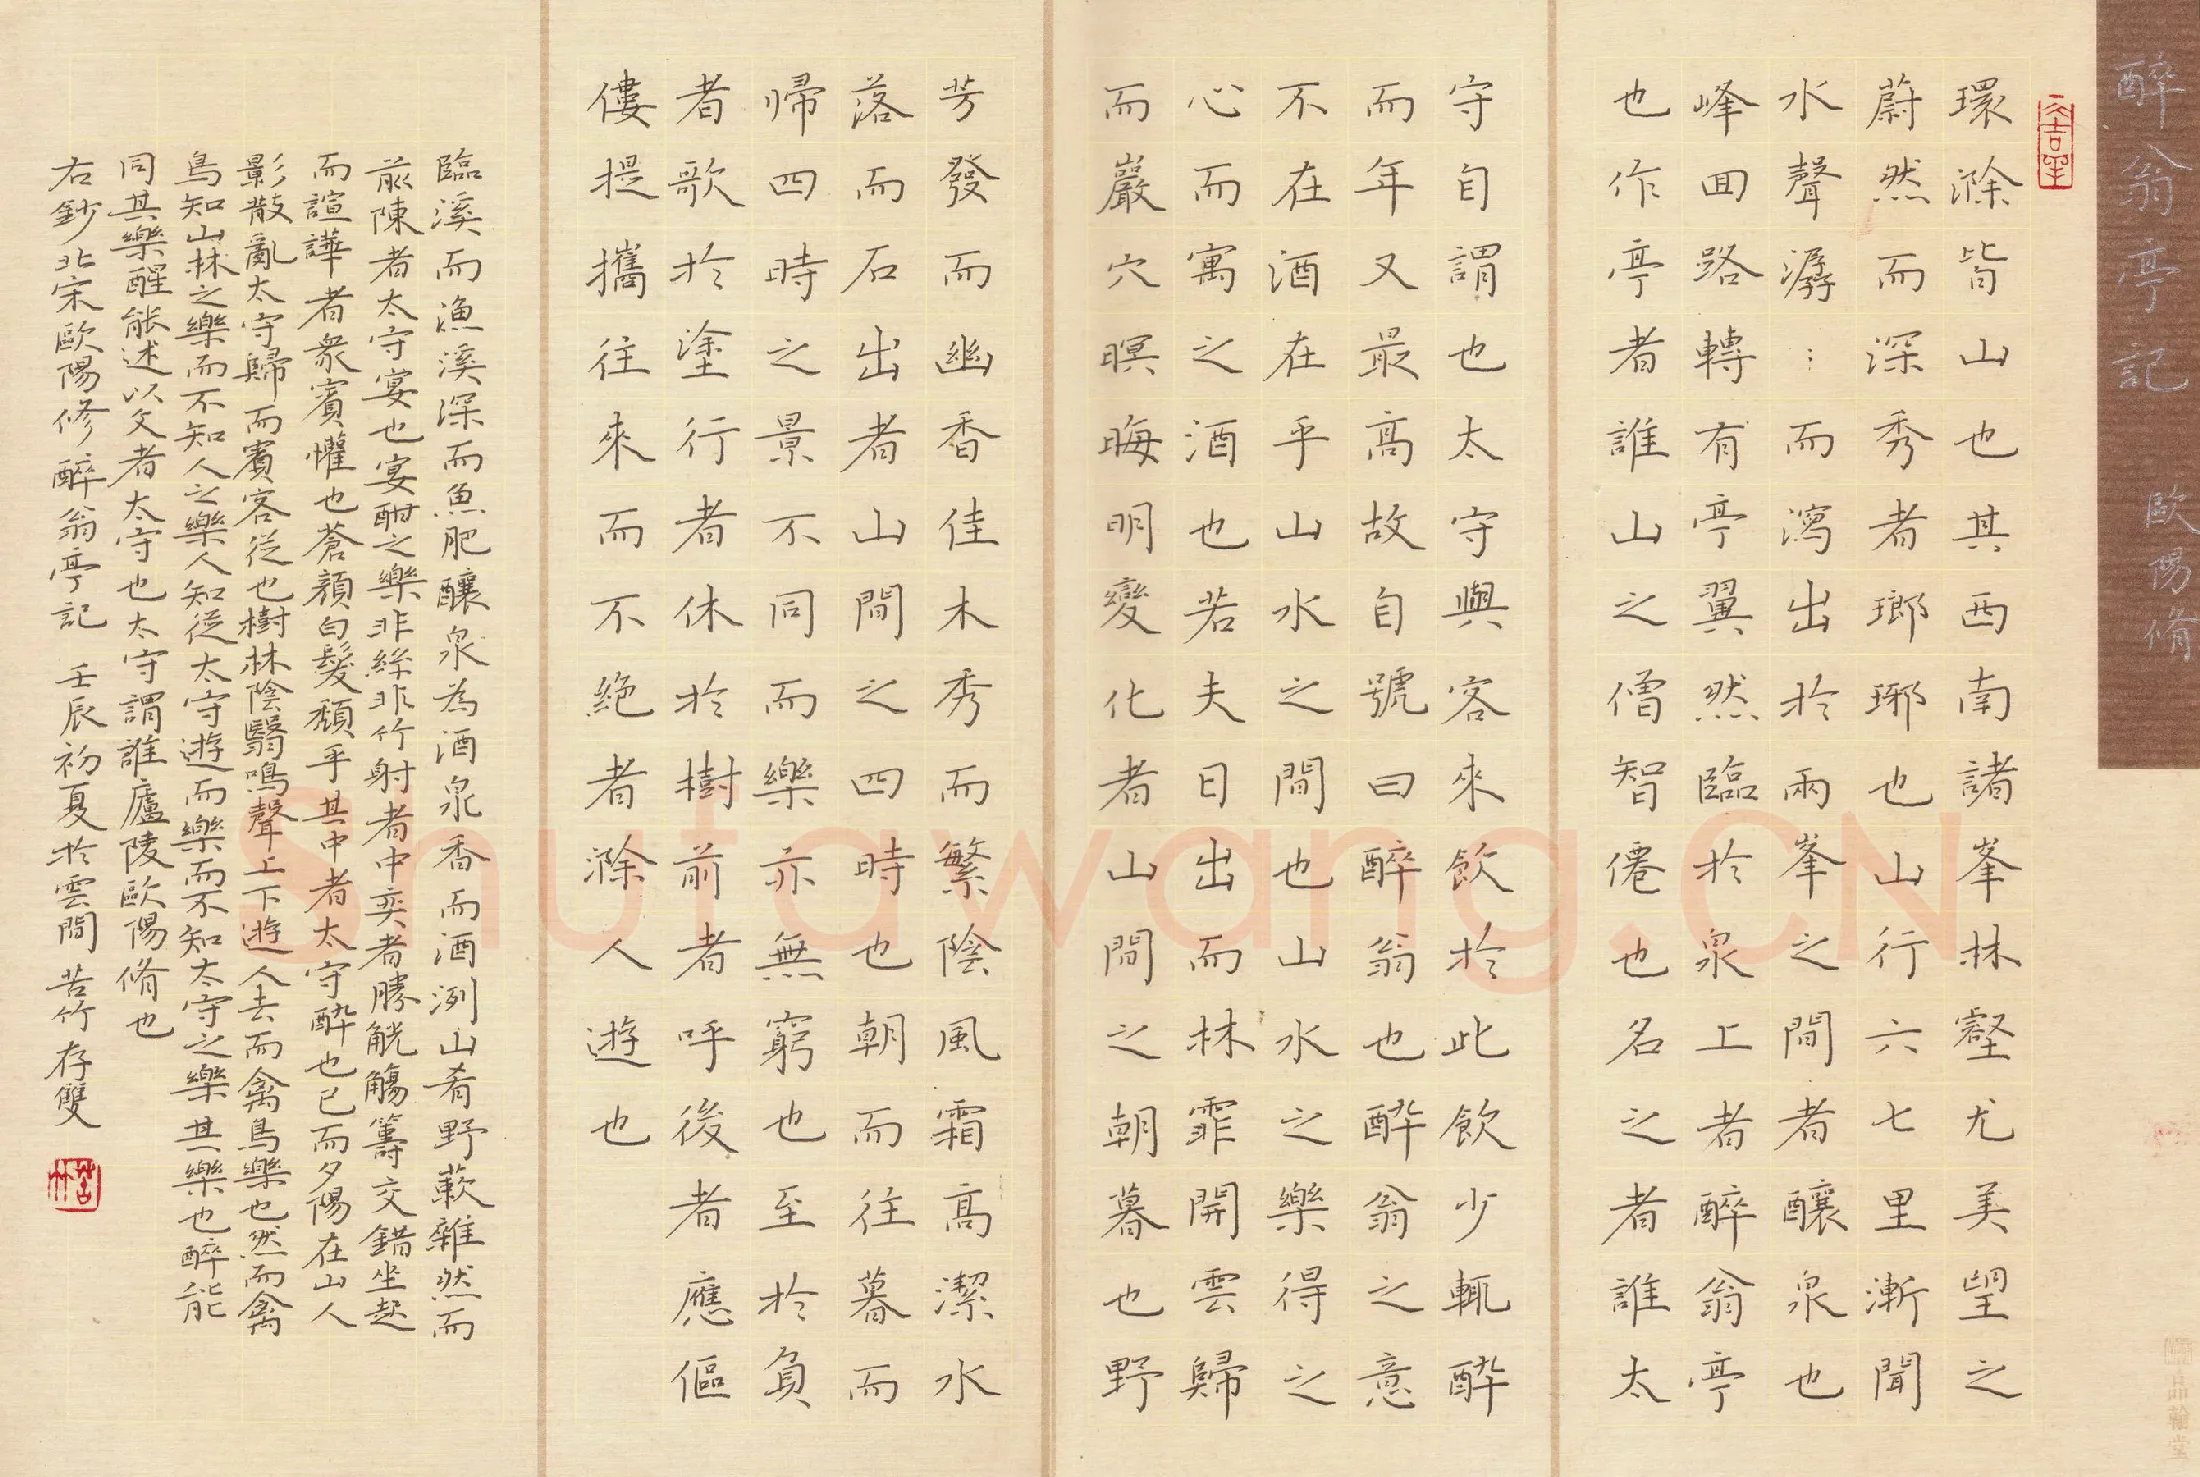 醉翁亭記 歐陽脩
環滁皆山也其西南諸峯林壑尤美望之
蔚然而深秀者瑯琊也山行六七里漸聞
水聲潺⋮而瀉出於兩峯之間者釀泉也
峰回路轉有亭翼然臨於泉上者醉翁亭
也作亭者誰山之僧智僊也名之者誰太
守自謂也太守與客來飲於此飲少輒醉
而年又最高故自號曰醉翁也醉翁之意
不在酒在乎山水之間也山水之樂得之
心而寓之酒也若夫日出而林霏開雲歸
而巖穴暝晦明變化者山間之朝暮也野
芳發而幽香佳木秀而繁陰風霜高潔水
落而石出者山間之四時也朝而往暮而
歸四時之景不同而樂亦無窮也至於負
者歌於塗行者休於樹前者呼後者應傴
僂提攜往來而不絕者滁人遊也
臨溪而漁溪深而魚肥釀泉為酒泉香而酒洌山肴野蔌雜然而
前陳者太守宴也宴酣之樂非絲非竹射者中奕者勝觥觴籌交錯坐起
而諠譁者衆賓懽也蒼顏白髮頹乎其中者太守醉也已而夕陽在山人
影散亂太守歸而賓客從也樹林陰翳鳴聲上下遊人去而禽鳥樂也然而禽
鳥知山林之樂而不知人之樂人知從太守遊而樂而不知太守之樂其樂也醉能
同其樂醒能述以文者太守也太守謂誰廬陵歐陽脩也
右鈔北宋歐陽修醉翁亭記 壬辰初夏於雲間 苦竹存雙
苦竹
品翰堂
Shufawang.CN